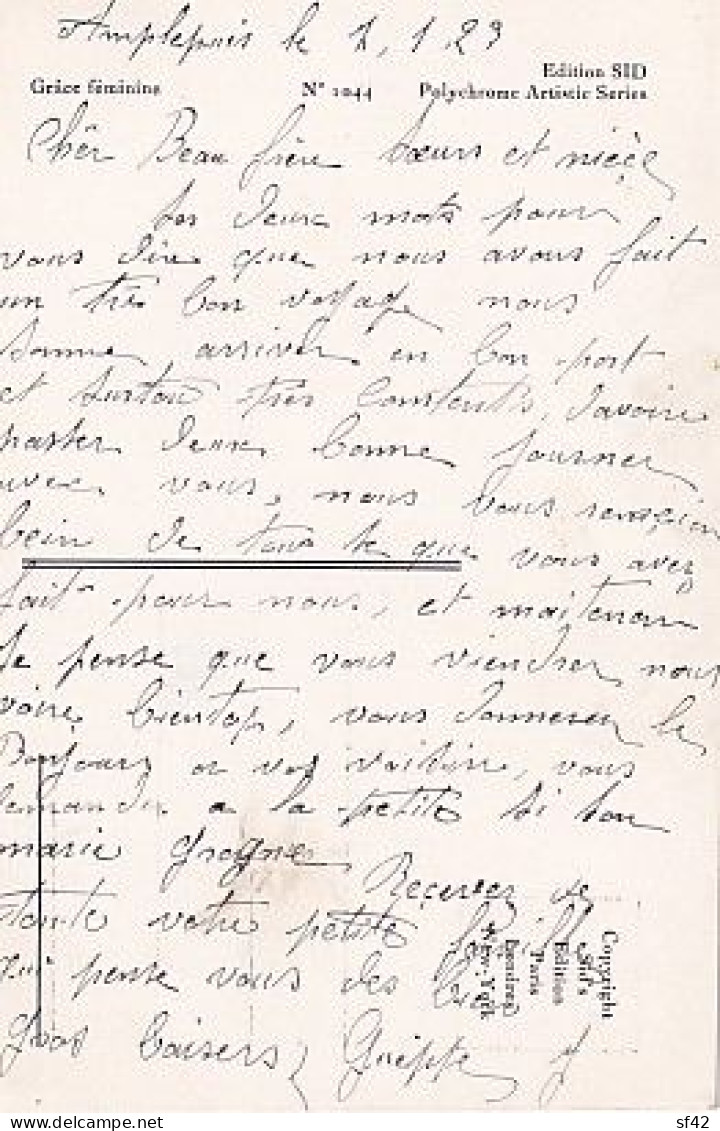 Amplepuis le 1, 1 29
Edition SID
Grâce féminine Nº 1044 Polychrome Artistic Series
Chèr Beau frère Soeurs et nièce
Les deux mots pour
vous dire que nous avons fait
un très bon voyage nous
somme arriver en bon port
et surtou très contents, davoire
passer deux bonne journer
avec vous, nous vous
bein de tous le que vous avez
fait pour nous, et maitenan
Je pense que vous viendrer nous
voire bientop, vous donnerer le
Bonjours a vos voisine, vous
demander a la petite si son
marie grogner
Recevez de
toute votre petite famille
qui pense vous des bien
gros baisers,
Copyright
Sid's
Edition
Paris
Londres
New-York
sf42